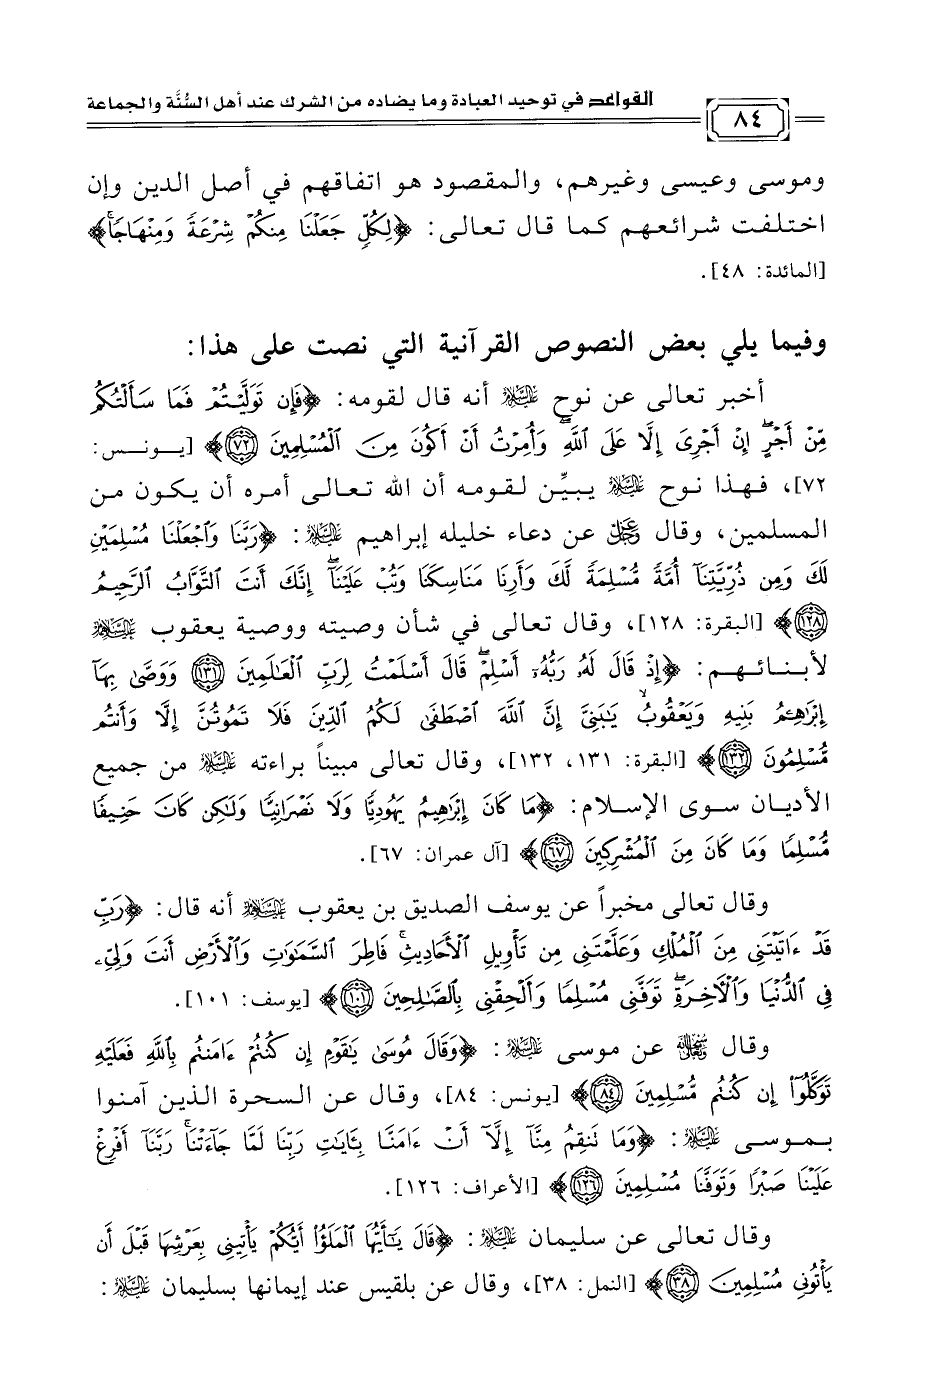 القواعد في توحيد العبادة وما يضاده من الشرك عند أهل السُّنَّة والجماعة
٨٤
وموسى وعيسى وغيرهم، والمقصود هو اتفاقهم في أصل الدين وإن
اختلفت شرائعهم كما قال تعالى: ﴿لِكُلٍّ جَعَلْنَا مِنكُمْ شِرْعَةً وَمِنْهَاجًاۚ﴾
[المائدة: ٤٨].
وفيما يلي بعض النصوص القرآنية التي نصت على هذا:
أخبر تعالى عن نوح عليه السلام أنه قال لقومه: ﴿فَإِن تَوَلَّيْتُمْ فَمَا سَأَلْتُكُم
مِّنْ أَجْرٍۖ إِنْ أَجْرِىَ إِلَّا عَلَى ٱللَّهِۖ وَأُمِرْتُ أَنْ أَكُونَ مِنَ ٱلْمُسْلِمِينَ ٧٢﴾ [يـونـس:
٧٢]، فـهـذا نـوح عليه السلام يبيِّن لقومه أن الله تعالى أمره أن يكون من
المسلمين، وقال عز وجل عن دعاء خليله إبراهيم عليه السلام: ﴿رَبَّنَا وَٱجْعَلْنَا مُسْلِمَيْنِ
لَكَ وَمِن ذُرِّيَّتِنَآ أُمَّةً مُّسْلِمَةً لَّكَ وَأَرِنَا مَنَاسِكَنَا وَتُبْ عَلَيْنَآۖ إِنَّكَ أَنتَ ٱلتَّوَّابُ ٱلرَّحِيمُ
١٢٨﴾ [البقرة: ١٢٨]، وقال تعالى في شأن وصيته ووصية يعقوب عليهما السلام
لأبنائهم: ﴿إِذْ قَالَ لَهُۥ رَبُّهُۥٓ أَسْلِمْۖ قَالَ أَسْلَمْتُ لِرَبِّ ٱلْعَٰلَمِينَ ١٣١ وَوَصَّىٰ بِهَآ
إِبْرَٰهِـۧمُ بَنِيهِ وَيَعْقُوبُ يَٰبَنِىَّ إِنَّ ٱللَّهَ ٱصْطَفَىٰ لَكُمُ ٱلدِّينَ فَلَا تَمُوتُنَّ إِلَّا وَأَنتُم
مُّسْلِمُونَ ١٣٢﴾ [البقرة: ١٣١، ١٣٢]، وقال تعالى مبيناً براءته عليه السلام من جميع
الأديان سوى الإسلام: ﴿مَا كَانَ إِبْرَٰهِيمُ يَهُودِيًّا وَلَا نَصْرَانِيًّا وَلَٰكِن كَانَ حَنِيفًا
مُّسْلِمًا وَمَا كَانَ مِنَ ٱلْمُشْرِكِينَ ٦٧﴾ [آل عمران: ٦٧].
وقال تعالى مخبراً عن يوسف الصديق بن يعقوب عليهما السلام أنه قال: ﴿رَبِّ
قَدْ ءَاتَيْتَنِى مِنَ ٱلْمُلْكِ وَعَلَّمْتَنِى مِن تَأْوِيلِ ٱلْأَحَادِيثِۚ فَاطِرَ ٱلسَّمَٰوَٰتِ وَٱلْأَرْضِ أَنتَ وَلِىِّۦ
فِى ٱلدُّنْيَا وَٱلْءَاخِرَةِۖ تَوَفَّنِى مُسْلِمًا وَأَلْحِقْنِى بِٱلصَّٰلِحِينَ ١٠١﴾ [يوسف: ١٠١].
وقال سبحانه وتعالى عن موسى عليه السلام: ﴿وَقَالَ مُوسَىٰ يَٰقَوْمِ إِن كُنتُمْ ءَامَنتُم بِٱللَّهِ فَعَلَيْهِ
تَوَكَّلُوٓا۟ إِن كُنتُم مُّسْلِمِينَ ٨٤﴾ [يونس: ٨٤]، وقال عن السحرة الذين آمنوا
بـموسى عليه السلام: ﴿وَمَا تَنقِمُ مِنَّآ إِلَّآ أَنْ ءَامَنَّا بِـَٔايَٰتِ رَبِّنَا لَمَّا جَآءَتْنَاۚ رَبَّنَآ أَفْرِغْ
عَلَيْنَا صَبْرًا وَتَوَفَّنَا مُسْلِمِينَ ١٢٦﴾ [الأعراف: ١٢٦].
وقال تعالى عن سليمان عليه السلام: ﴿قَالَ يَٰٓأَيُّهَا ٱلْمَلَؤُا۟ أَيُّكُمْ يَأْتِينِى بِعَرْشِهَا قَبْلَ أَن
يَأْتُونِى مُسْلِمِينَ ٣٨﴾ [النمل: ٣٨]، وقال عن بلقيس عند إيمانها بسليمان عليه السلام: